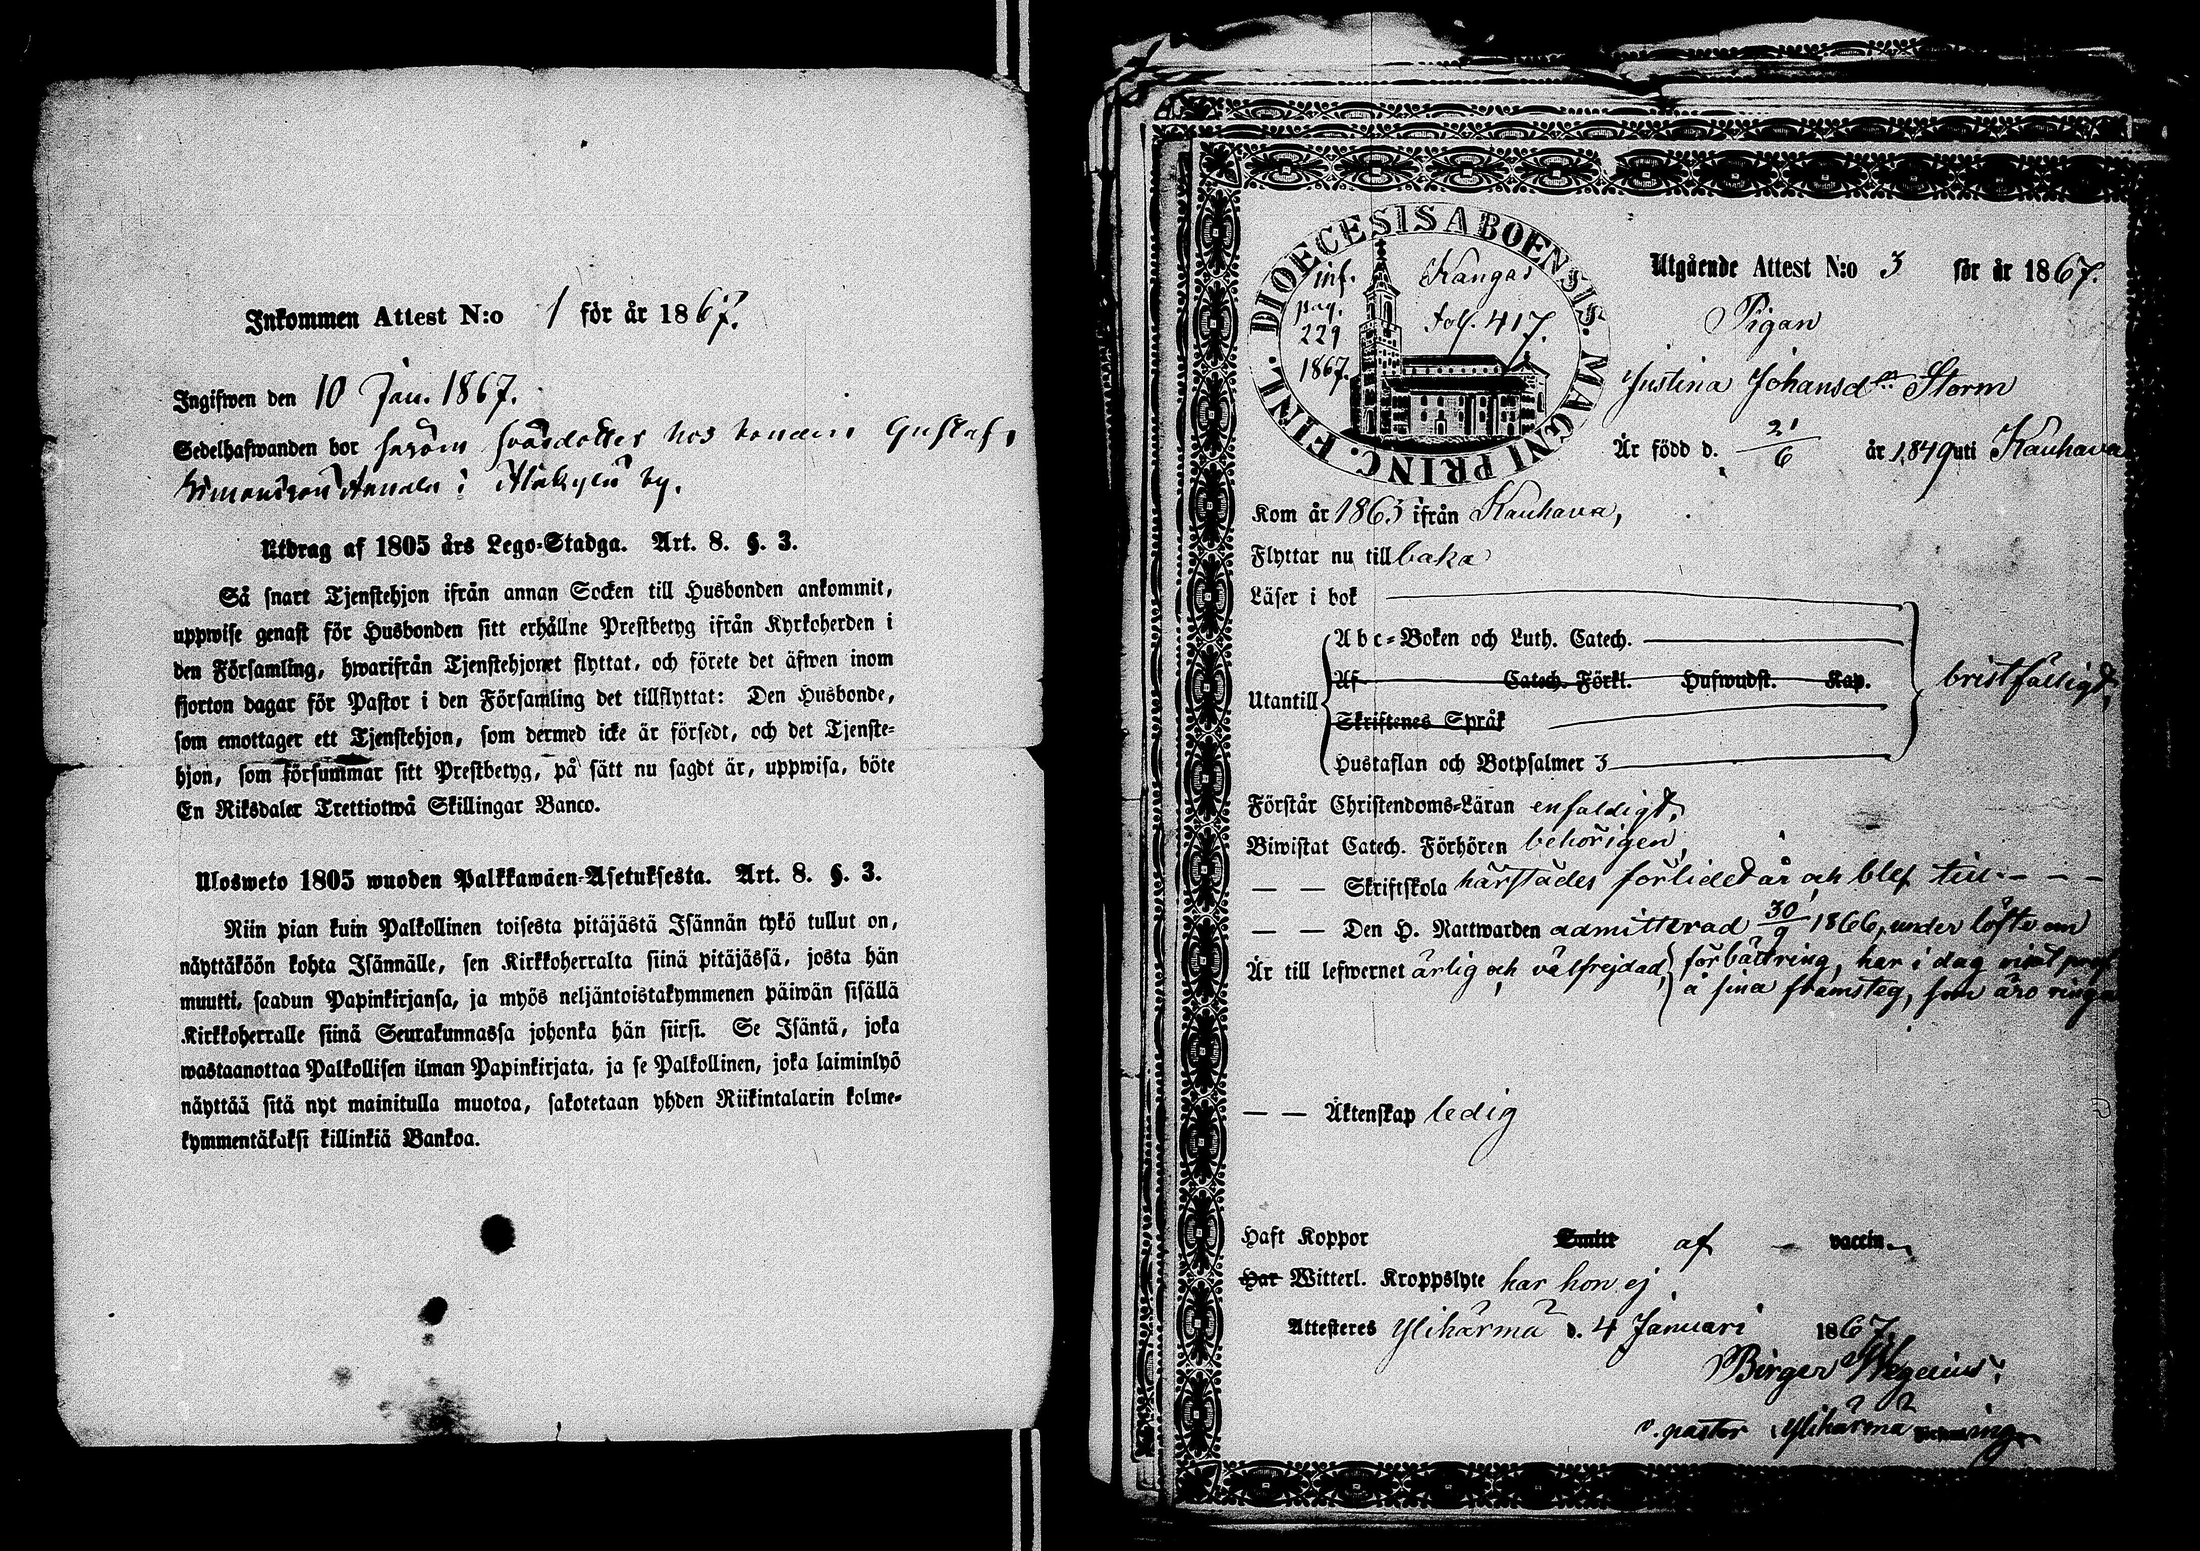 Inkommen Attest N:o 1 för år 1867.
Ingifwen den 10 Jan. 1867.
Sedelhafwanden bor såsom hos bonden Gustaf
i Alakylä by.
Utdrag af 1805 års Lego-Stadga. Art. 8. §. 3.
Så snart Tjenstehjon ifrån annan Socken till Husbonden ankommit,
uppwise genast för Husbonden sitt erhållne Prestbetyg ifrån Kyrkoherden i
den Församling, hwarifrån Tjenstehjonet flyttat, och förete det äfwen inom
fjorton dagar för Pastor i den Församling det tillflyttat: Den Husbonde,
som emottager ett Tjenstehjon, som dermed icke är försedt, och det Tjenste-
hjon, som försummar sitt Prestbetyg, på sätt nu sagdt är, uppwisa, böte
En Riksdaler Trettiotwå Skillingar Banco.
Ulosweto 1805 wuoden Palkkawäen-Asetuksesta. Art. 8. §. 3.
Niin pian kuin Palkollinen toisesta pitäjästä Isännän tykö tullut on,
näyttäköön kohta Isännälle, sen Kirkkoherralta siinä pitäjässä, josta hän
muutti, saadun Papinkirjansa, ja myös neljäntoistakymmenen päiwän sisällä
Kirkkoherralle siinä Seurakunnassa johonka hän siirsi. Se Isäntä, joka
wastaanottaa Palkollisen ilman Papinkirjata, ja se Palkollinen, joka laiminlyö
näyttää sitä nyt mainitulla muotoa, sakotetaan yhden Riikintalarin kolme-
kymmentäkaksi killinkiä Bankoa.
DIOECESIS ABOENSIS. MAGNI PRINC. FINL.
inf.
pag.
229
1867.
Kangas
fol. 417.
Utgående Attest N:o 3 för år 1867.
Pigan
Justina Johansdtr Storm
Är född d. 21/6 år 1849 uti Kauhava
Kom år 1863 ifrån Kauhava,
Flyttar nu tillbaka
Läser i bok
Utantill
Abc-Boken och Luth. Catech.
Af Catech. Förkl. Hufwudst. Kap.
Skriftenes Språk
Hustaflan och Botpsalmer 3
bristfälligt.
Förstår Christendoms-Läran enfaldigt.
Biwistat Catech. Förhören behörigen,
— — Skriftskola härstädes förlidet år och blef till - - -
— — Den H. Nattwarden admitterad 30/9 1866, under löfte om
Är till lefwernet ärlig och välfrejdad, förbättring, har i dag
å sina framsteg, som äro ringa
— — Äktenskap ledig
Haft Koppor Smitt af vaccin.
Har Witterl. Kroppslyte har hon ej
Attesteres Ylihärmä d. 4 Januari 1867.
Birger Wegelius.
v. pastor Ylihärmä